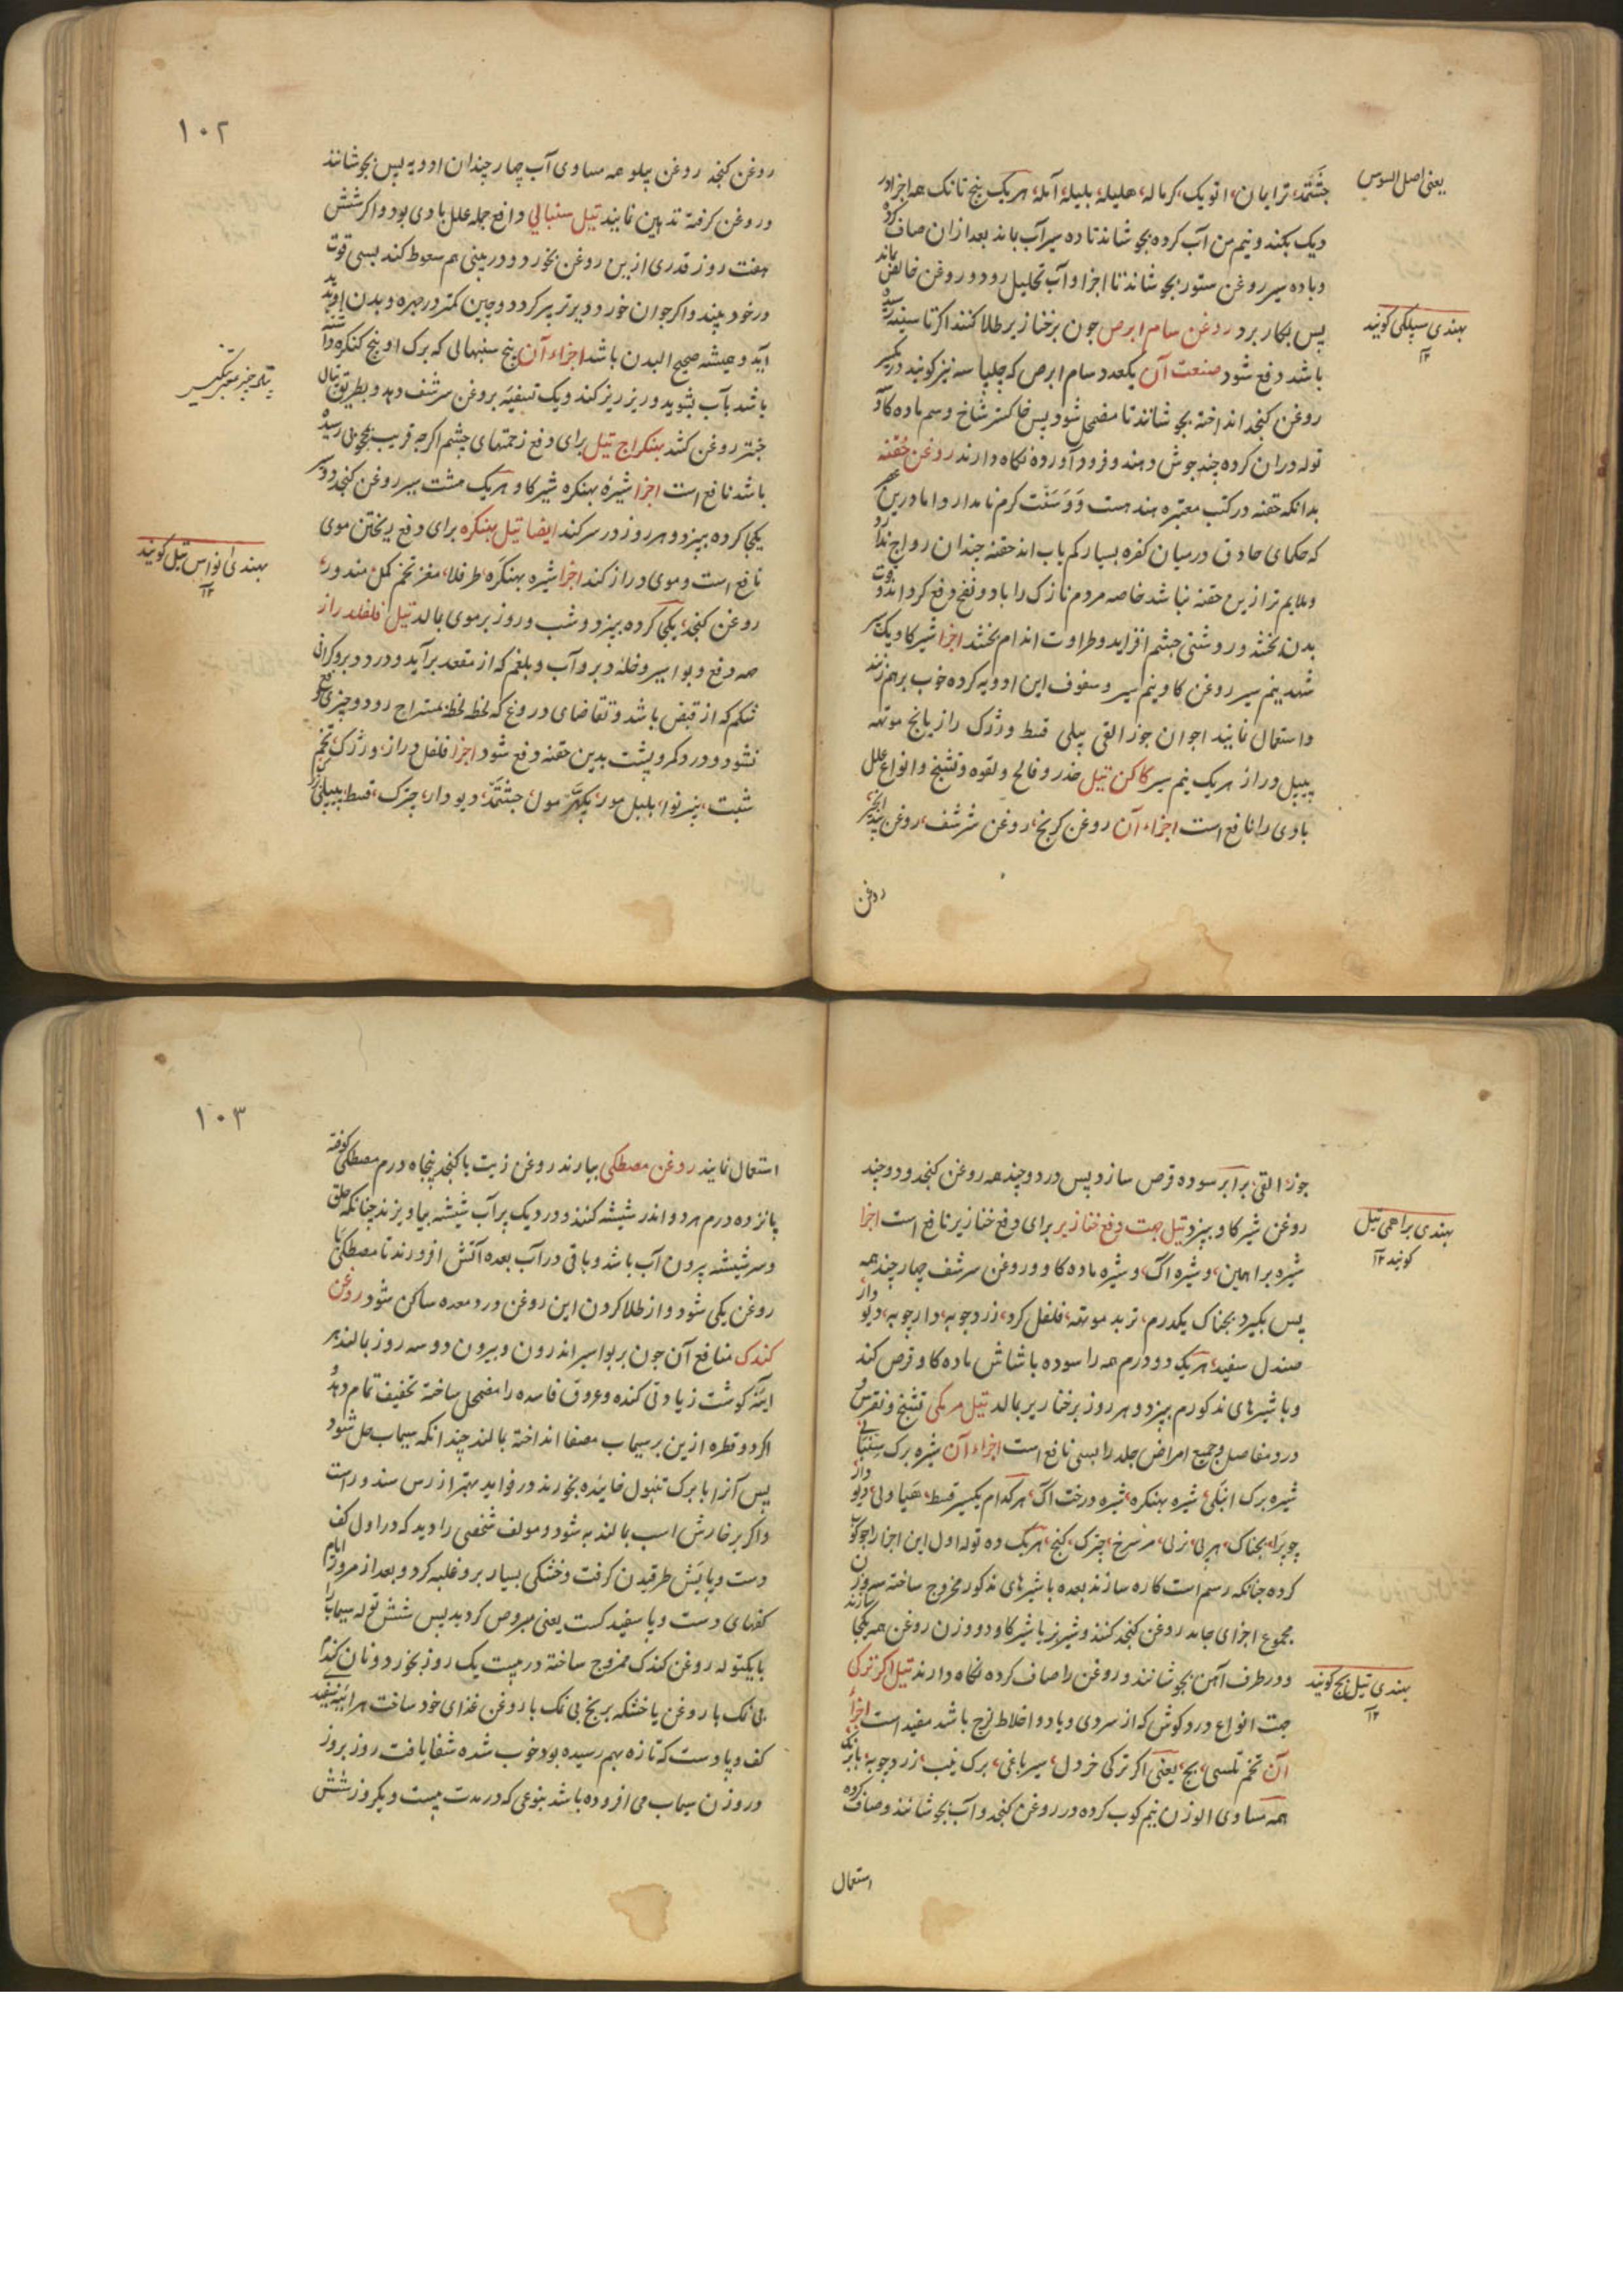 جتمد، ترایمان، اتویک، کرماله، هلیله، بلیله، آمله، هریک پنج تانک همه اجزا در
دیک بکند و نیم من آب کرده بجوشاند تا ده سیر آب باند بعد ازان صاف کرده
و با ده سیر روغن ستور بجوشاند تا اجزا و آب تحلیل رود و روغن خالص بماند
پس بکار برد روغن سام ابرص جون بر خنازیر طلا کنند اکر تا سینه رسیده
باشد دفع شود صنعت آن یکعدد سام ابرص که چلپاسه نیز کویند در یکسیر
روغن کنجد انداخته بجوشاند تا مضمحل شود پس خاکستر شاخ و سم ماده کاو
توله دران کرده چند جوش دهند و فرود آورده نکاه دارند روغن حقنه
بدانکه حقنه در کتب معتبره هند هست و کرم نامدار و اما درین
که حکمای حاذق درمیان کفره بسیار کم یاب اند حقنه چندان رواج ندارد
و ملایم تر ازین حقنه نباشد خاصه مردم نازک را باد و نفخ دفع کرداند و قوت
بدن بخشد و روشنی جشم افزاید و طراوت اندام بخشد اجزا شیر کاو یک سیر
شهد نیم سیر روغن کاو نیم سیر و سفوف این ادویه کرده خوب برهم زنند
و استعمال نمایند اجوان جوز القی پیلی قسط وژرک رازیانج موتهه
پیپل دراز هریک نیم سیر کاکن تیل خدر و فالج و لقوه و تشنج و انواع علل
بادی را نافع است اجزاء آن روغن کرنج، روغن شرشف، روغن بید انجیر
روغن
یعنی اصل السوس
بهندی سپلکی کویند
۱۲
۱۰۲
روغن کنجد روغن پیلو همه مساوی آب چهار چندان ادویه پس بجوشانند
و روغن کرفته تدهین نمایند تیل سنبالی دافع جمله علل بادی بود و اکر شش
هفت روز قدری ازین روغن بخورد و در بینی هم سعوط کند بسی قوت
در خود بیند و اکر جوان خورد دیرتر پیر کردد و چین کمتر در چهره و بدن او پدید
آید و همیشه صحیح البدن باشد اجزاء آن پنج سنبهالی که برک او پنج کنکره داشته
باشد بآب بشوید و ریز ریز کند و یک تسقیه بروغن سرشف دهد و بطریق پتال
جنتر روغن کشد بهنکراج تیل برای دفع زحمتهای چشم اکرجه قریب بکوری رسیده
باشد نافع است اجزا شیره بهنکره شیر کاو هریک هشت سیر روغن کنجد دو سیر
یکجا کرده بپزد و هر روز در سر کند ایضا تیل بهنکره برای دفع ریختن موی
نافع است و موی دراز کند اجزا شیره بهنکره، طرفلا، مغز تخم کمل، مندور،
روغن کنجد، یکجا کرده بپزد و شب و روز بر موی بمالد تیل فلفلدراز
جهه دفع و بواسیر و خلهٔ دبر و آب و بلغم که از مقعد برآید و درد دبر و کرانی
شکم که از قبض باشد و تقاضای دروغ که لحظه لحظه بمستراح رود و چیزی دفع
نشود و درد کمر و پشت بدین حقنه دفع شود اجزا فلفل دراز، وژرک، تخم
شبت، بیرنوا، بلبل مور، پکهر مول، جتمد، دیودار، چترک، قسط، پیپلی، مغز
پتال جنتر
بهندی انواس تیل کویند
۱۲
جوز القی، برابر سوده قرص سازد پس در دو چند همه روغن کنجد و دو چند
روغن شیر کاو بپزد تیل جهت دفع خنازیر برای دفع خنازیر نافع است اجزا
شیره براهمین، و شیره اک، و شیره ماده کاو و روغن سرشف چهار چند همه
پس بکیرد بجناک یکدرم، تربد موتهه، فلفل کرد، زردچوبه، دارچوبه، دیودار،
صندل سفید، هریک دو درم همه را سوده با شاش ماده کاو قرص کند
و با شیرهای مذکورم بپزد و هر روز بر خنازیر بمالد تیل مریکی تشنج و نقرس و
درد مفاصل و جمیع امراض جلد را بسی نافع است اجزاء آن شیره برک سنبهالی
شیره برک انبلی، شیره بهنکره، شیره درخت اک، هر کدام یکسیر قسط، هیاولی، دیودار
چوبرا، بجناک، هربی، نرلی، مرسرخ، چترک، کنج، هریک ده توله اول این اجزا را جوکوب
کرده جنانکه رسم است کاره سازند بعده با شیرهای مذکور ممزوج ساخته سه وزن
مجموع اجزای جامد روغن کنجد کنند و شیرنر با شیر کاو دو وزن روغن همه یکجا سازند
و در ظرف آهن بجوشانند و روغن را صاف کرده نکاه دارند تیل اکر ترکی
جهت انواع درد کوش که از سردی و باد و اخلاط لزج باشد مفید است اجزاء
آن تخم تلسی، بچ، یعنی اکر ترکی خردل، سیر باغی، برک نیب، زردچوبه، بابرنک،
همه مساوی الوزن نیم کوب کرده در روغن کنجد و آب بجوشانند و صاف کرده
استعمال
بهندی براهمی تیل
کویند ۱۲
بهندی تیل بچ کویند
۱۲
۱۰۳
استعمال نمایند روغن مصطکی بیارند روغن زیت با کنجد پنجاه درم مصطکی کوفته
پانزده درم هر دو اندر شیشه کنند و در دیک پر آب شیشه بیاویزند چنانکه حلق
و سر شیشه بیرون آب باشد و باقی در آب بعده آتش افروزند تا مصطکی با
روغن یکی شود و از طلا کردن این روغن درد معده ساکن شود روغن
کندک منافع آن جون بر بواسیر اندرون و بیرون دو سه روز بمالند هر
آینه کوشت زیادتی کنده و عروق فاسده را مضمحل ساخته تخفیف تمام دهد و
اکر دو قطره ازین بر سیماب مصفا انداخته بمالند چندانکه سیماب حل شود
پس آنرا با برک تنبول خائیده بخورند در فواید بهتر از رس سندور است
و اکر بر خارش اسب بمالند به شود و مولف شخصی را دید که در اول کف
دست و پایش طرقیدن کرفت و خشکی بسیار برو غلبه کرد و بعد از مرور ایام
کفهای دست و پا سفید کشت یعنی مبروص کردید پس شش توله سیماب را
با یکتوله روغن کندک ممزوج ساخته در بیست یک روز بخورد و نان کندم
بی نمک با روغن یا خشکه برنج بی نمک با روغن غذای خود ساخت هرآینه سفیدی
کف و پا و دست که تازه بهم رسیده بود خوب شده شفا یافت روز بروز
در وزن سیماب می افزوده باشد بنوعی که در مدت بیست و یکروز شش